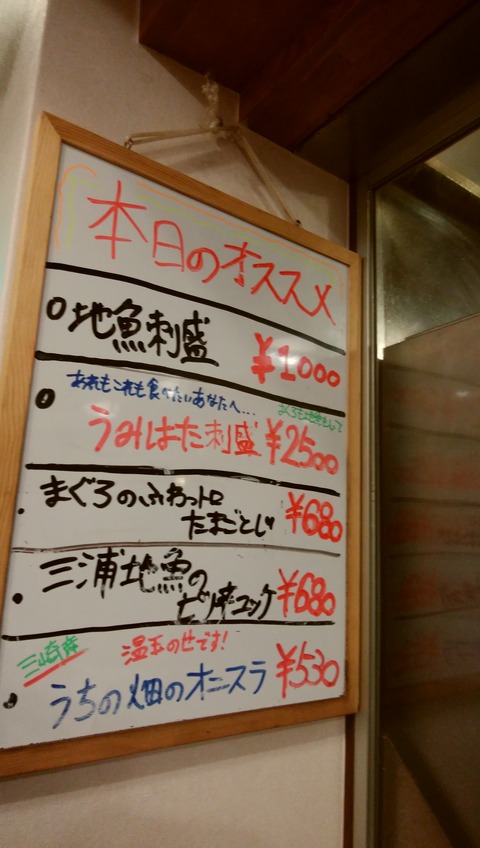 本日のオススメ
地魚刺盛 ¥1000
あれもこれも食べたいあなたへ...
うみはた刺盛 ¥2500
まぐろのふわっトロ
たまごとじ ¥680
三浦地魚の
ピリ辛ユッケ ¥680
三崎産
温玉のせです!
うちの畑のオニスラ ¥530